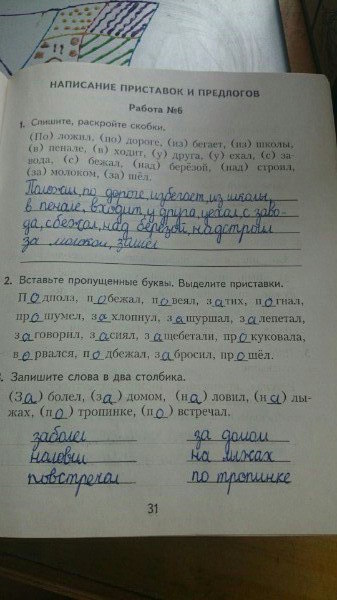 НАПИСАНИЕ ПРИСТАВОК И ПРЕДЛОГОВ
Работа №6
1. Спишите, раскройте скобки.
(По) ложил, (по) дороге, (из) бегает, (из) школы,
(в) пенале, (в) ходит, (у) друга, (у) ехал, (с) за-
вода, (с) бежал, (над) берёзой, (над) строил,
(за) молоком, (за) шёл.
Положил, по дороге, избегает, из школы,
в пенале, входит, у друга, уехал, с заво-
да, сбежал, над берёзой, надстроил
за молоком, зашёл
2. Вставьте пропущенные буквы. Выделите приставки.
Подполз, побежал, повеял, затих, погнал,
прошумел, захлопнул, зашуршал, залепетал,
заговорил, засиял, защебетали, прокуковала,
ворвался, подбежал, забросил, прошёл.
3. Запишите слова в два столбика.
(За) болел, (за) домом, (на) ловил, (на) лы-
жах, (по) тропинке, (по) встречал.
заболел за домом
наловил на лыжах
повстречал по тропинке
31